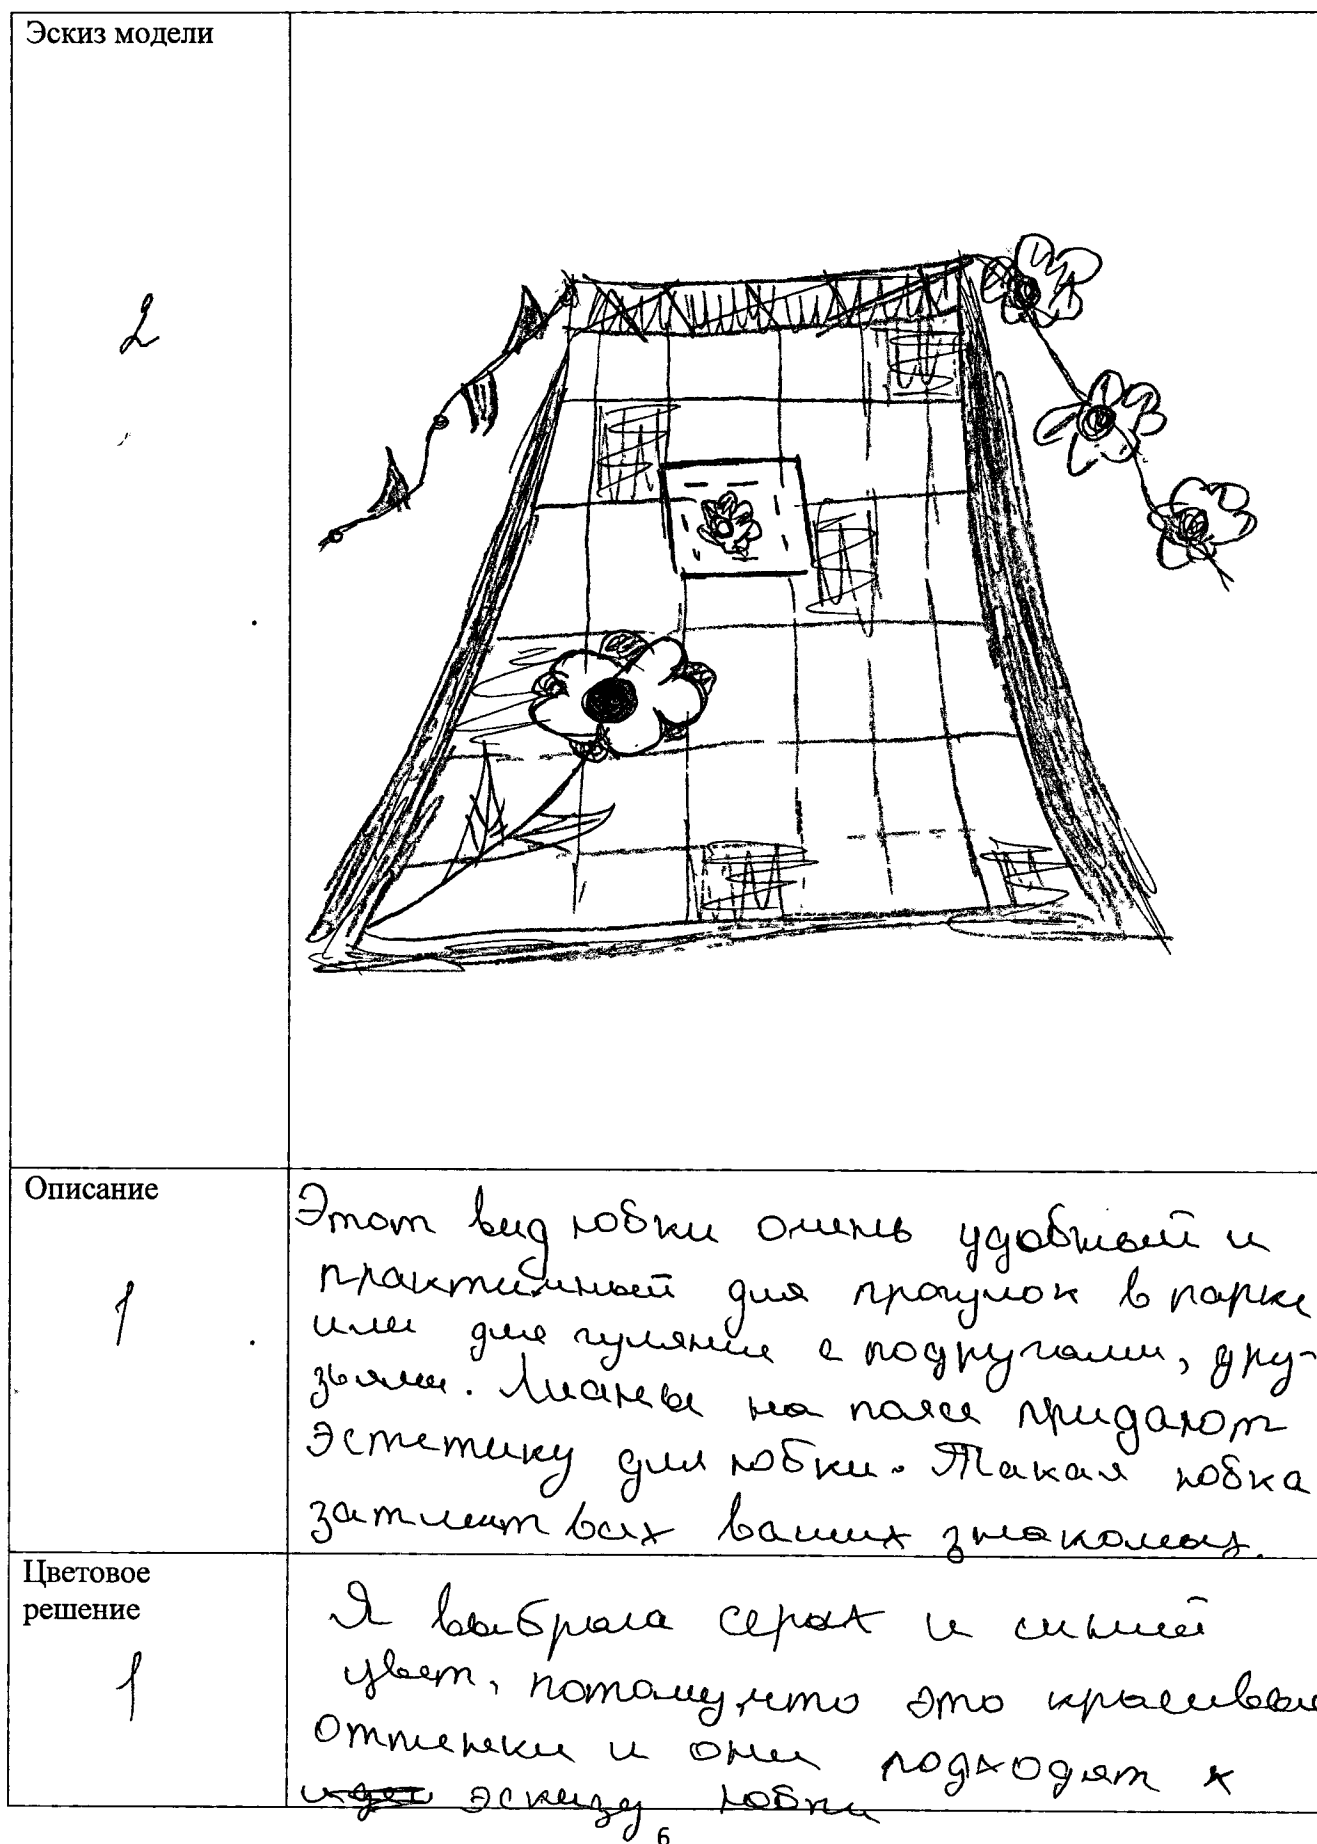 Эскиз модели
2
Описание
1
Этот вид юбки очень удобный и
практичный для прогулок в парке
или для гуляние с подругами, дру-
зьями. Лианы на поясе придают
эстетику для юбки. Такая юбка
затмит всех ваших знакомых.
Цветовое
решение
1
Я выбрала серый и синий
цвет, потому, что это красивые
оттенки и они подходят к
эскизу юбки
6